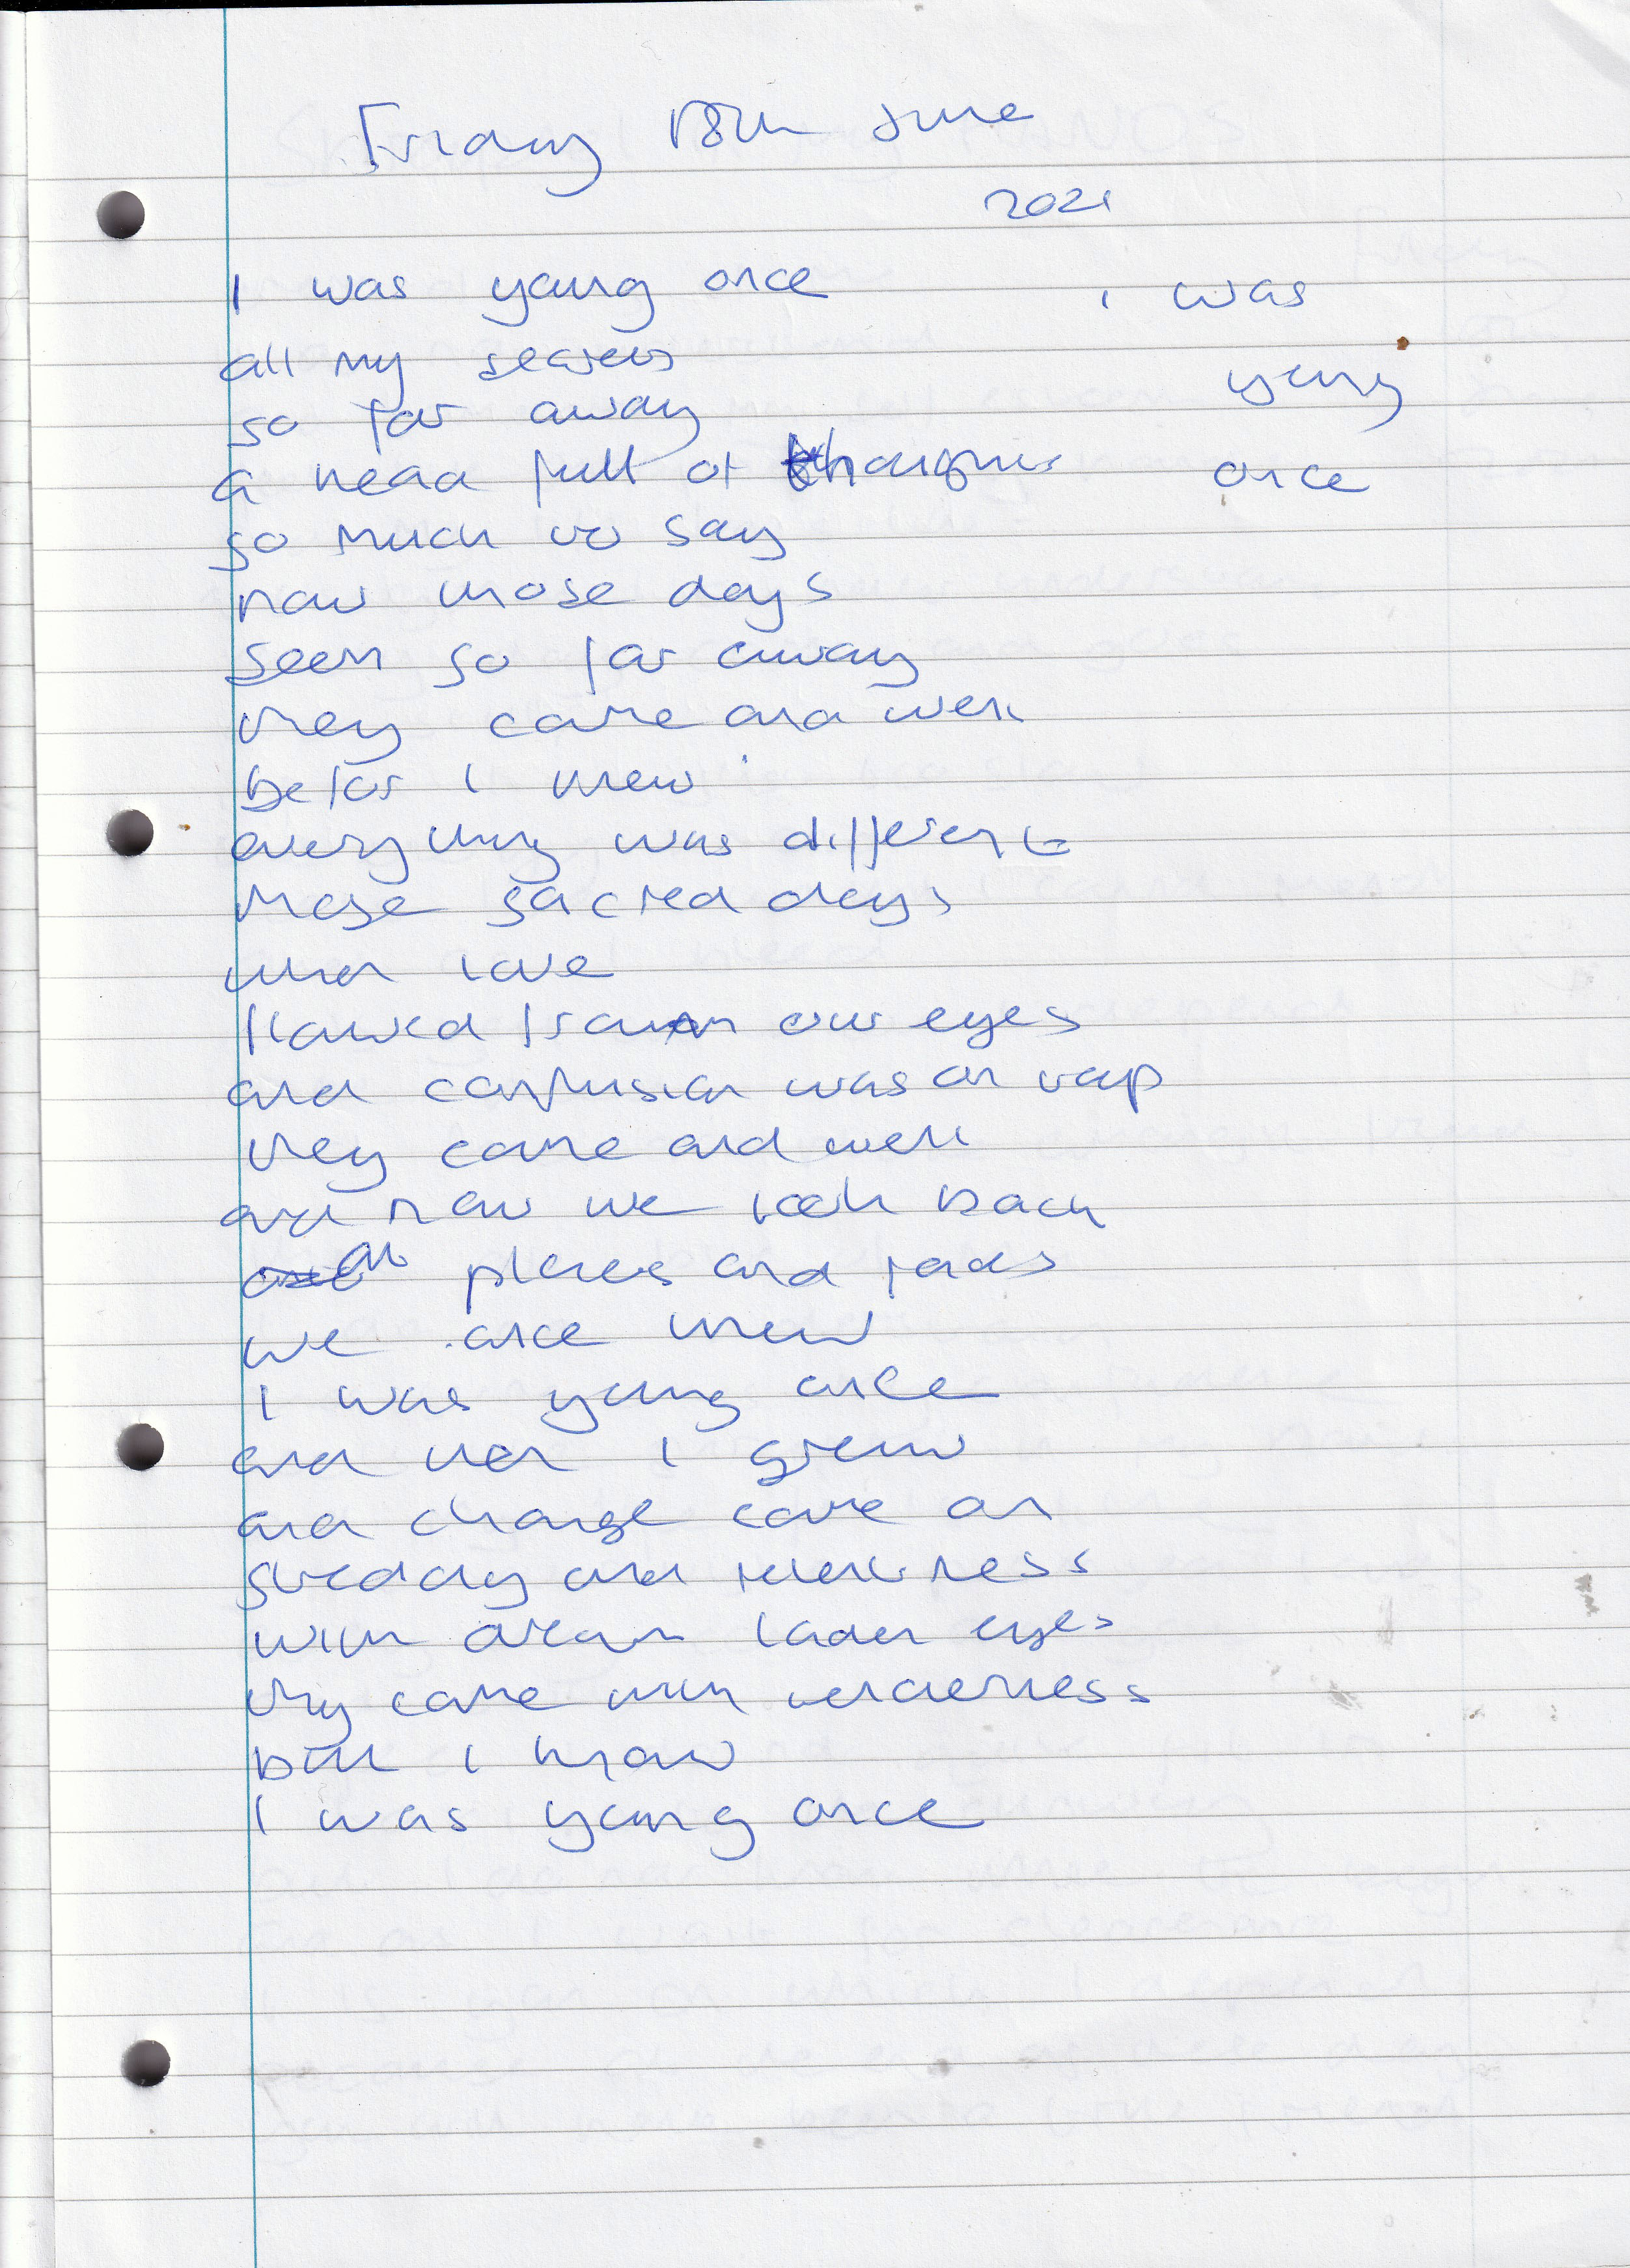 Friday 18th June
2021
I was young once
i was
all my seasons
young
so far away
a head full of thoughts
once
so much to say
now those days
seem so far away
they came and went
before I knew
everything was different
those sacred days
when love
flowed from our eyes
and confusion was on tap
they came and went
and now we look back
at places and faces
we once knew
I was young once
and then I grew
and change came on
steadily and relentless
with dream laden eyes
they came with tenderness
but I know
I was young once